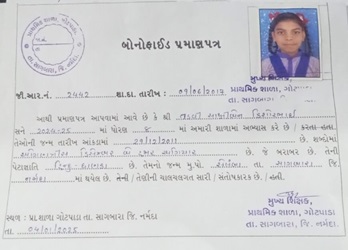 બોનોફાઈડ પ્રમાણપત્ર
જી.આર.નં. 2442 શા.દા. તારીખ : 09/06/2017
મુખ્ય શિક્ષક,
પ્રાથમિક શાળા, ગોટપાડા
તા. સાગબારા જિ. નર્મદા
આથી પ્રમાણપત્ર આપવામાં આવે છે કે શ્રી
સને 2024-25 માં ધોરણ 8 માં અમારી શાળામાં અભ્યાસ કરે છે
તેઓની જન્મ તારીખ આંકડામાં 29/12/2011 છે. શબ્દોમાં
છે જે બરાબર છે. તેની
પેટાજાતિ હિન્દુ તેમનો જન્મ મુ.પો. તા. સાગબારા જિ.
નર્મદા માં થયેલ છે. તેની / તેણીની ચાલચલગત સારી / સંતોષકારક છે.
મુખ્ય શિક્ષક,
પ્રાથમિક શાળા, ગોટપાડા
તા. સાગબારા જિ. નર્મદા
સ્થળ : પ્રા.શાળા ગોટપાડા તા. સાગબારા જિ. નર્મદા
તા. 04/01/2025